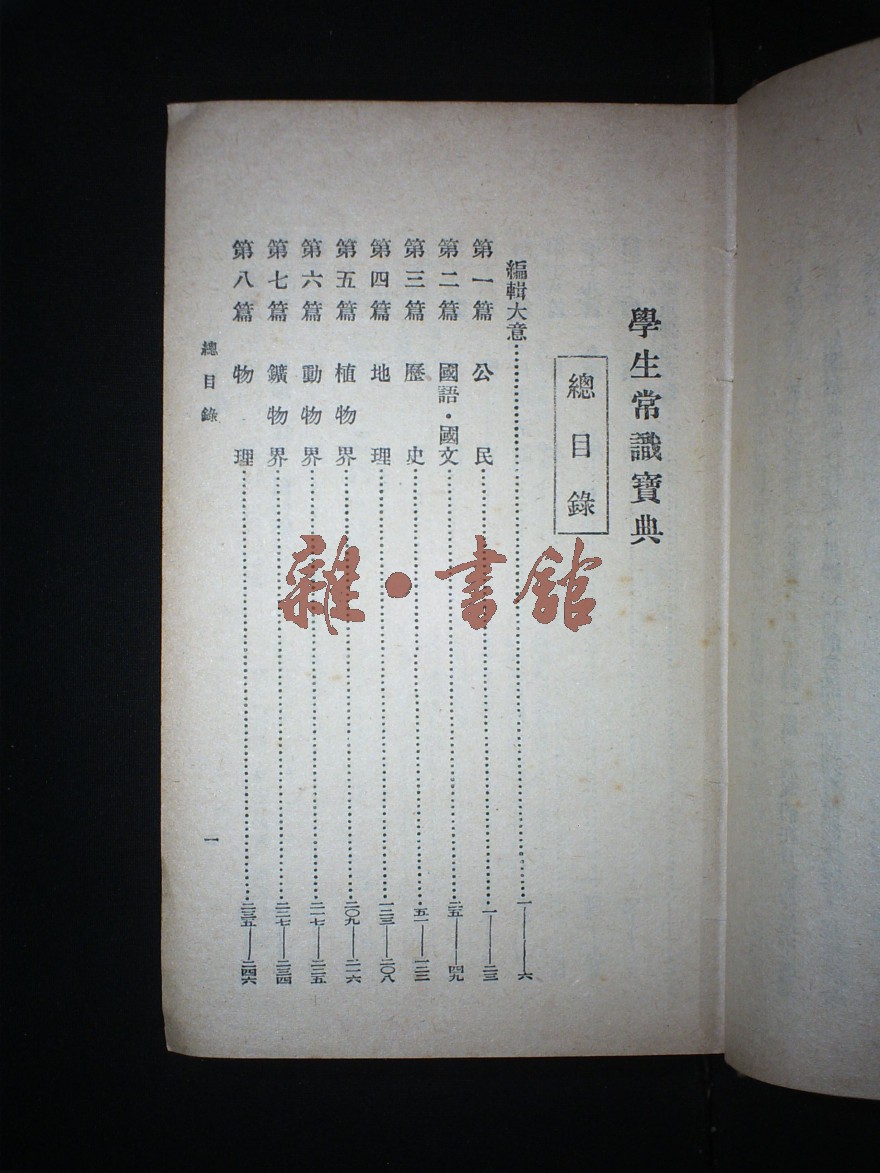 學生常識寶典
總目錄
編輯大意……一——六
第一篇 公民……一——二三
第二篇 國語·國文……二五——四九
第三篇 歷史……五一——一二二
第四篇 地理……一二三——二〇八
第五篇 植物界……二〇九——二一六
第六篇 動物界……二一七——二二五
第七篇 鑛物界……二二七——二三四
第八篇 物理……二三五——二四六
總目錄 一
雜·書館